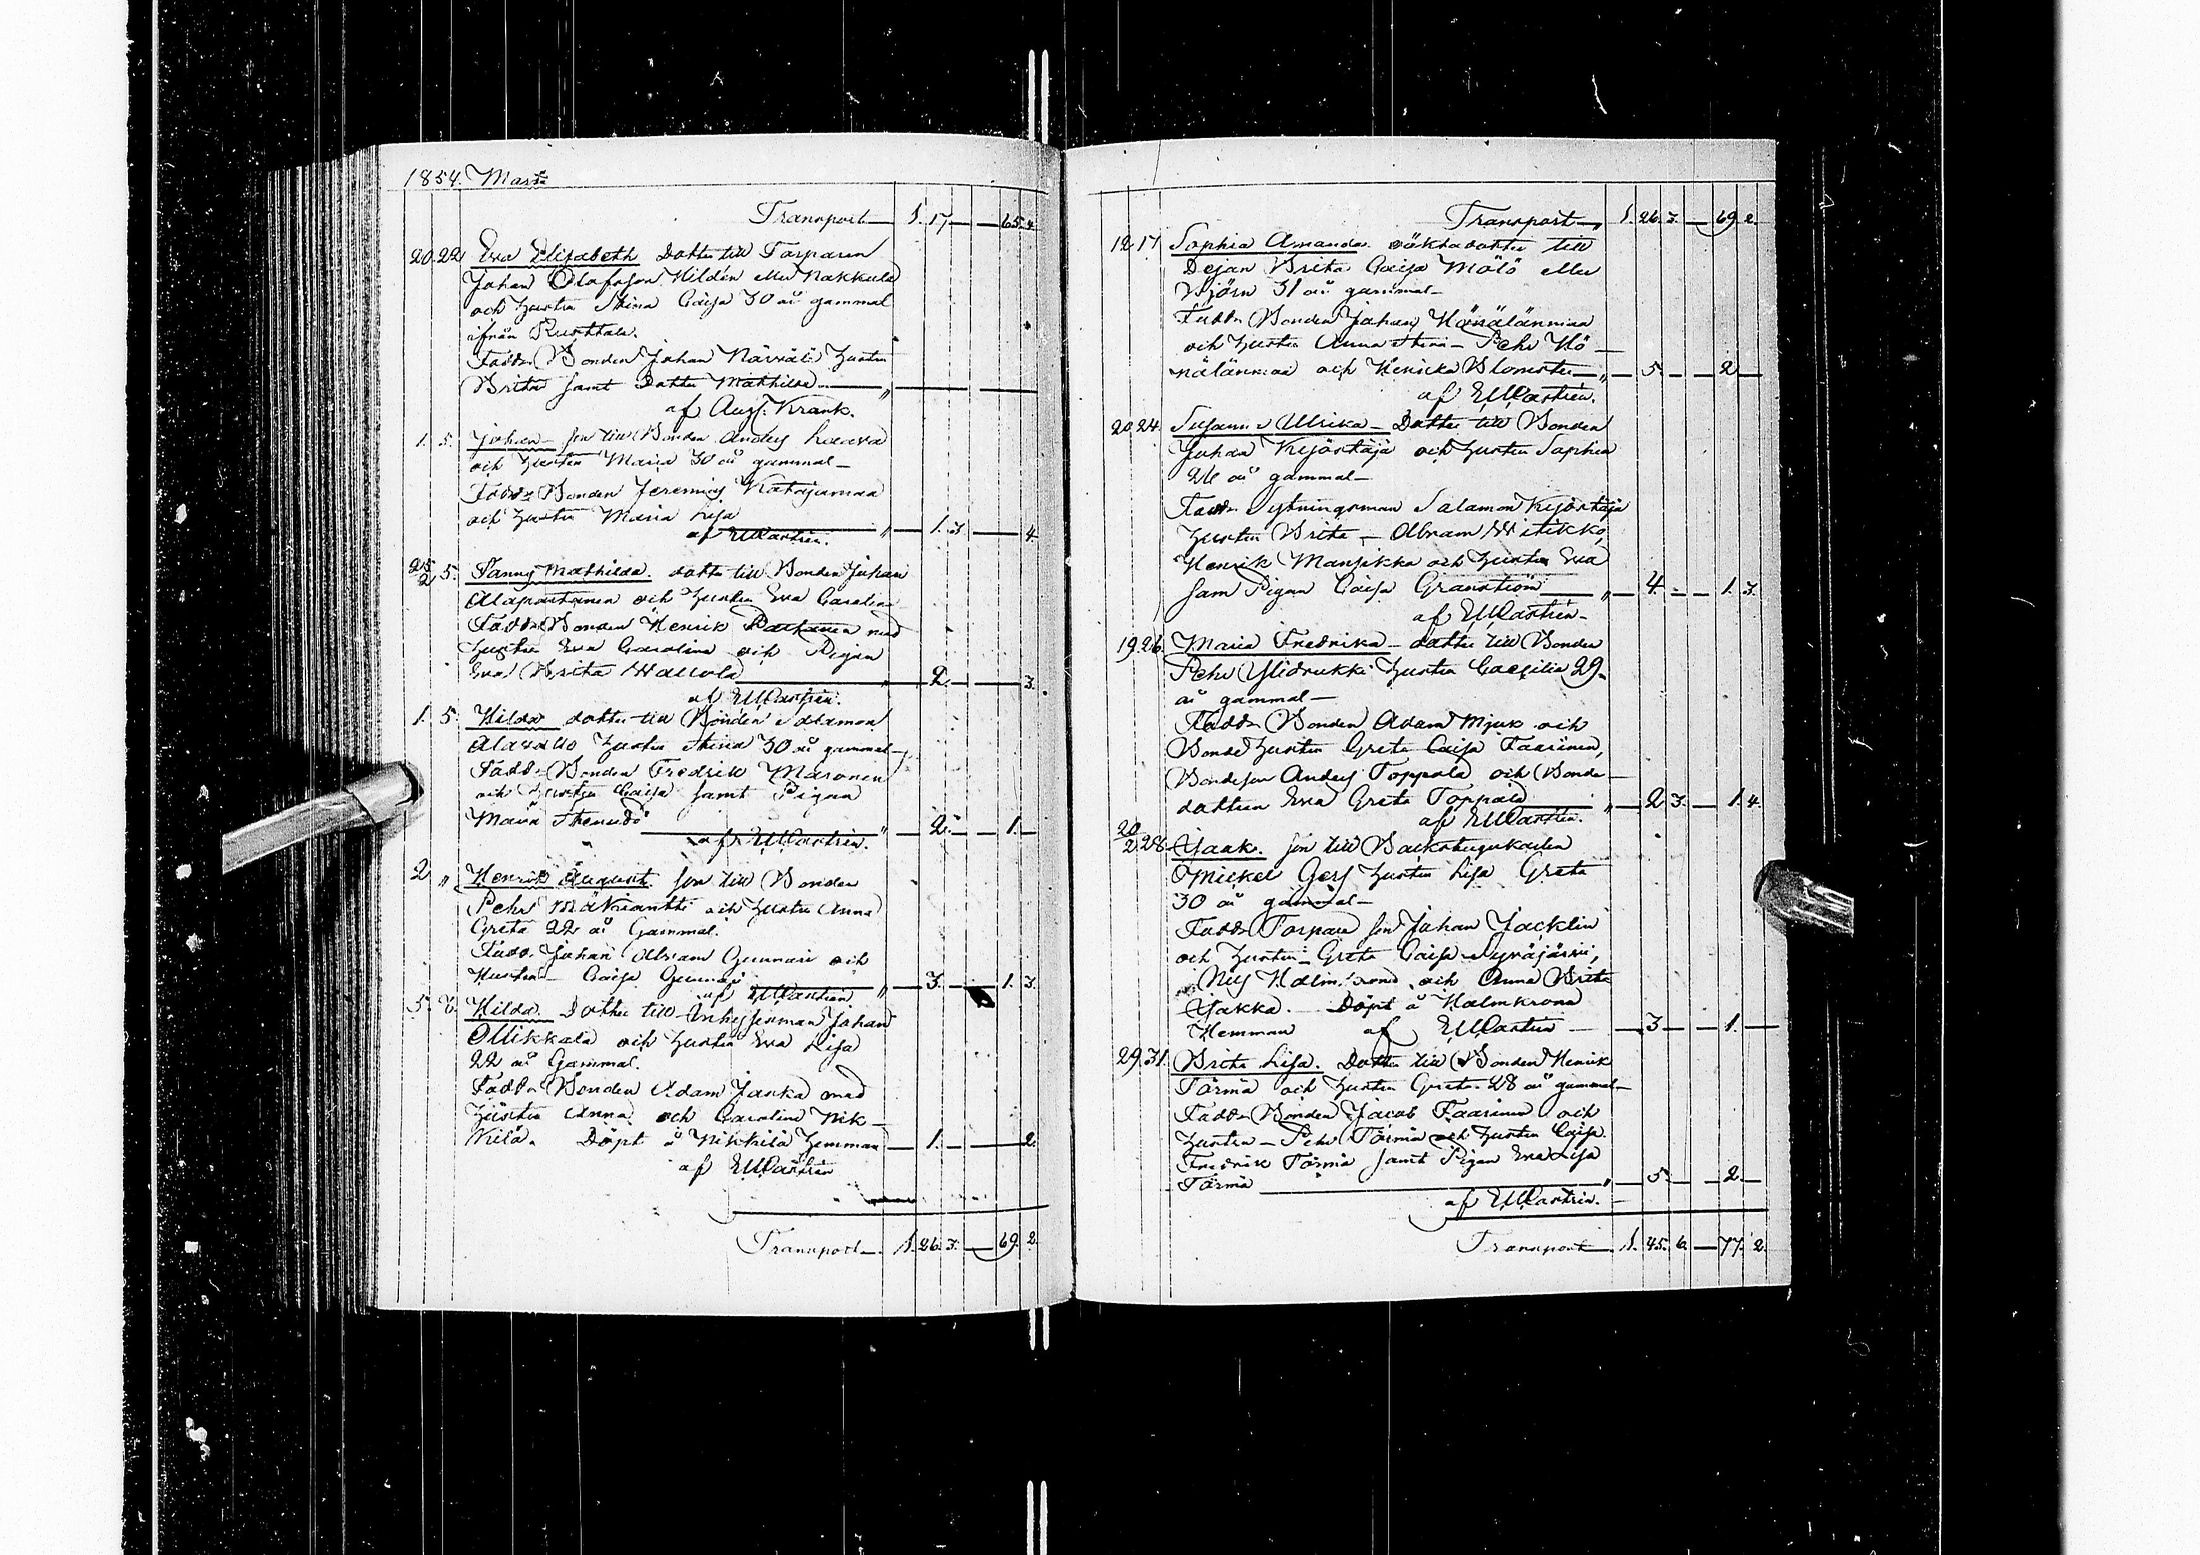 1854. Mars
Transport 1. 17 65. 4
20. 22 Eva Elisabeth Dotter till Torparen
Johan Olofsson Hildén eller Nakkula
och hustru Stina Caisa 30 år gammal
ifrån Ruottala.
Fadd. Bonden Johan Närväli hustru
Brita samt Dotter Mathilda
af Aug. Krank.
1. 5. Johan son till Bonden Anders Laava
och hustru Maria 30 år gammal
Fadd. Bonden Jeremias Katajamaa
och hustru Maria Lisa 1. 3 4.
af EWCastrén.
25/2 5. Fanny Mathilda. dotter till Bonden Johan
Alaportimo och hustru Eva Carolina
Fadd. Bonden Henrik med
hustru Eva Carolina och Pigan
Eva Brita 2. 3.
af EWCastrén.
1. 5. Hilda dotter till Bonden Salamon
hustru Stina 30 år gammal
Fadd. Bonden Fredrik Maronen
och hustru Caisa samt Pigan
Maria 2. 1.
af EWCastrén.
2 " Henrik August. son till Bonden
Pehr och hustru Anna
Greta 22 år Gammal.
Fadd. Johan Abram Gunnari och
Hustru Caisa Gunnari 3. 1. 3.
af EWCastrén
5. 6. Hilda. Dotter till Inhysesman Johan
Ollikkala och hustru Eva Lisa
22 år Gammal.
Fadd. Bonden Adam Janka med
hustru Anna och Carolina Nik-
kilä. Döpt å Nikkilä hemman 1. 2.
af EWCastrén
Transport 1. 26. 3. 69. 2.
Transport 1. 26. 3. 69 2.
12. 17 Sophia Amanda. oäkta dotter till
Dejan Brita Caisa Mölö eller
Björn 31 år gammal
Fadd. Bonden Johan Hönälänmaa
och hustru Anna Stina Pehr Hö-
nälänmaa och Henrika Blomster 5. 2
af EWCastrén.
20. 24. Susanna Ulrika Dotter till Bonden
Johan Kyöstäjä och hustru Sophia
26 år gammal
Fadd. Sytningsman Salamon Kyöstäjä
hustru Brita Abram Witikko,
Henrik Mansikka och hustru Eva
sam Pigan Caisa Granström 4. 1. 3.
af EWCastrén
19. 26. Maria Fredrika dotter till Bonden
Pehr Ylidrukki hustru Caecilia 29
år gammal
Fadd. Bonden Adam Mjuk och
Bondehustru Greta Caisa Taarinen,
Bondeson Anders Toppola och Bonde
dottren Eva Greta Toppola 2 3. 1. 4.
af EWCastrén.
20/2 28 Isaak. son till Backstugukarlen
Mickel Gers hustru Lisa Greta
30 år gammal
Fadd. Torpare son Johan Jacklin
och hustru Greta Caisa Syväjärvi,
Nils Holmkrona och Anna Brita
Yakka. Döpt å Holmkrona
Hemman af EWCastrén 3 1.
29. 31. Brita Lisa. Dotter till Bonden Henrik
Törmä och hustru Greta 28 år gammal
Fadd. Bonden Jacob Taarinen och
hustru Pehr Törmä och hustru Caisa.
Fredrik Törmä samt Pigan Eva Lisa
Törmä 5. 2.
af EWCastrén.
Transport 1. 45. 6. 77. 2.